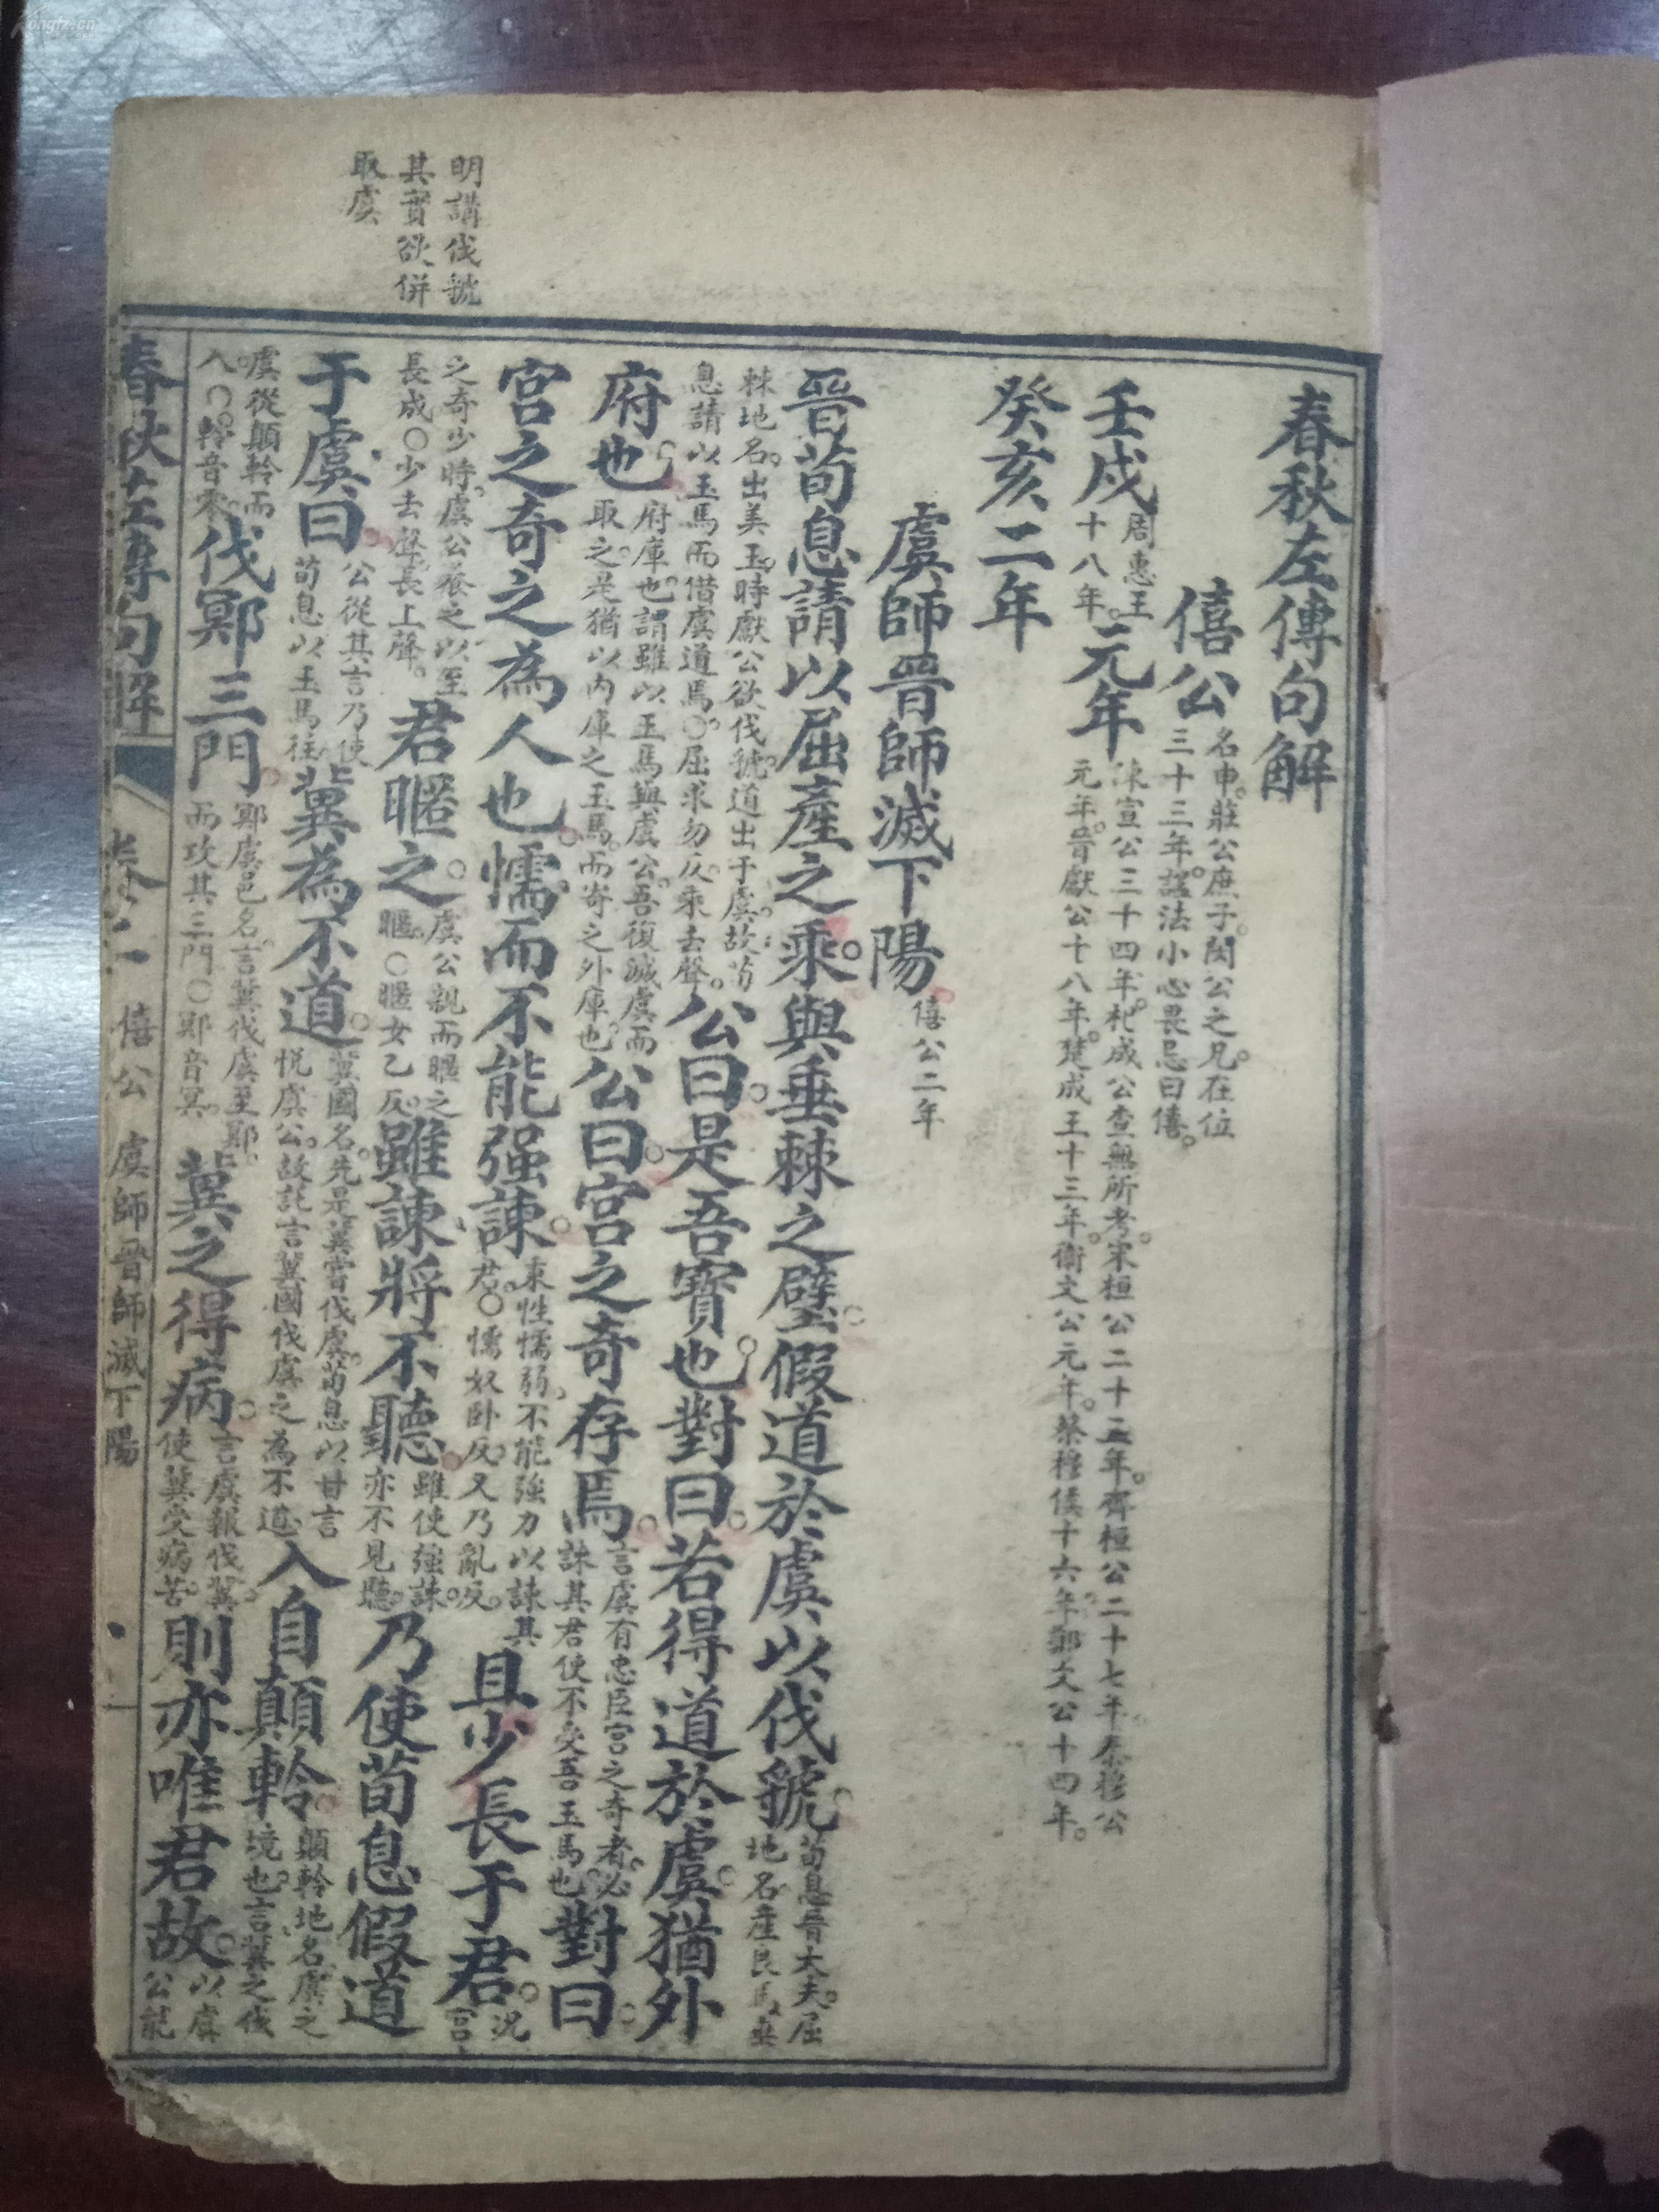 明講伐虢
其實欲併
取虞
春秋左傳句解
僖公名申。莊公庶子。閔公之兄。在位三十三年。諡法小心畏忌曰僖。
壬戌周惠王十八年。元年陳宣公三十四年。杞成公查無所考。宋桓公二十三年。齊桓公二十七年。秦穆公元年。晉獻公十八年。楚成王十三年。衛文公元年。蔡穆侯十六年。鄭文公十四年。
癸亥二年
虞師晉師滅下陽僖公二年
晉荀息請以屈產之乘。與垂棘之璧。假道於虞以伐虢。荀息晉大夫。屈地名。產良馬。垂
棘地名。出美玉。時獻公欲伐虢。道出于虞。故荀息請以玉馬而借虞道焉。○屈求勿反。乘去聲。公曰。是吾寶也。對曰。若得道於虞。猶外
府也。府庫也。謂雖以玉馬與虞公。吾復滅虞而取之。是猶以內庫之玉馬。而寄之外庫也。公曰。宮之奇存焉。言虞有忠臣宮之奇者。必諫其君使不受吾玉馬也。對曰。
宮之奇之為人也。懦而不能强諫。東性懦弱。不能強力以諫其君。○懦奴臥反。又乃亂反。且少長于君。況宮
之奇少時。虞公養之以至長成。○少去聲。長上聲。君暱之。虞公親而暱之。○暱女乙反。雖諫將不聽。雖使強諫。亦不見聽。乃使荀息假道
于虞曰。公從其言。乃使荀息以玉馬往。冀為不道。冀國名。先是冀嘗伐虞。荀息以甘言悅虞公。故託言冀國伐虞之為不道。入自顛軨。顛軨地名。虞之境也。言冀之伐
虞從顛軨而入。○軨音零。伐鄍三門。鄍虞邑名。言冀伐虞至鄍。而攻其三門。○鄍音冥。冀之得病。言虞報伐冀。使冀受病苦。則亦唯君故。以虞公能
春秋左傳句解 卷二 僖公 虞師晉師滅下陽 一